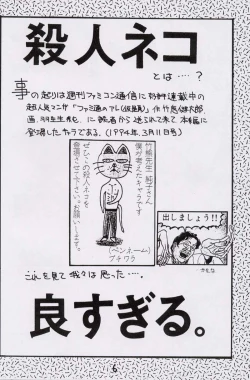 殺人ネコ
とは……?
事の起りは週刊ファミコン通信に好評連載中の
超人気マンガ「ファミ通のアレ(仮題)」作竹熊健太郎
画、羽生生純、に読者から送られて来て本編に
登場したキャラである。(1994年、3月11日号)
竹熊先生、純子さん
僕が考えたキャラです
ぜひこの殺人ネコを
登場させて下さい。お願いします。
(ペンネーム)
プチワラ
出しましょう!!
これを見て我々は思った……。
良すぎる。
6